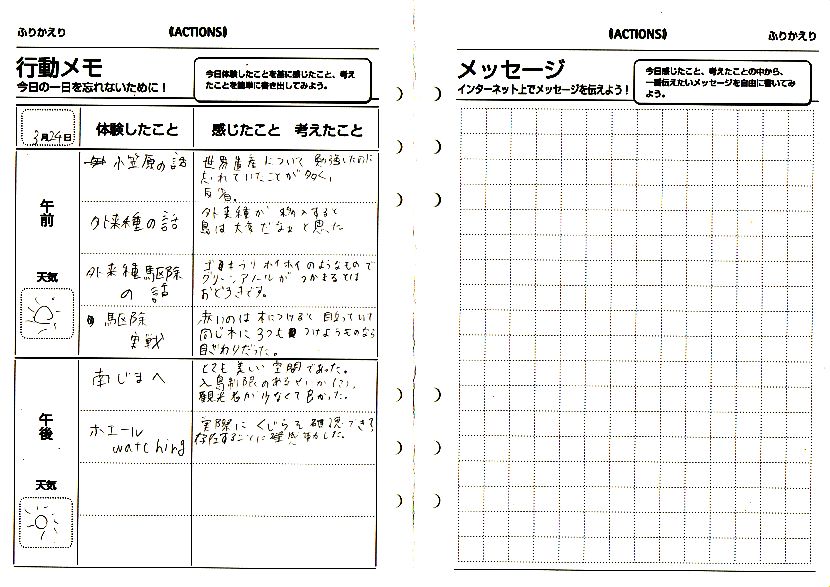 ふりかえり
《ACTIONS》
行動メモ
今日の一日を忘れないために！
今日体験したことを基に感じたこと、考え
たことを簡単に書き出してみよう。
3月24日
体験したこと
感じたこと 考えたこと
午前
天気
小笠原の話
世界遺産について 勉強したのに
忘れていたことが多く、
反省。
外来種の話
外来種が 移入すると
島は大変だなぁと思った
外来種駆除
の 話
ゴキブリ ホイホイのようなもので
グリーンアノールが つかまるとは
おどろきです。
駆除
実戦
赤いのは 木につけると 目立っていて
同じ木に 3つも つけようものなら
目ざわりだった。
午後
天気
南じまへ
とても 美しい 空間であった。
入島制限のあるせいか(?)、
観光客が少なくて良かった。
ホエール
watching
実際に くじらを 確認できて
《ACTIONS》
ふりかえり
メッセージ
インターネット上でメッセージを伝えよう！
今日感じたこと、考えたことの中から、
一番伝えたいメッセージを自由に書いてみ
よう。